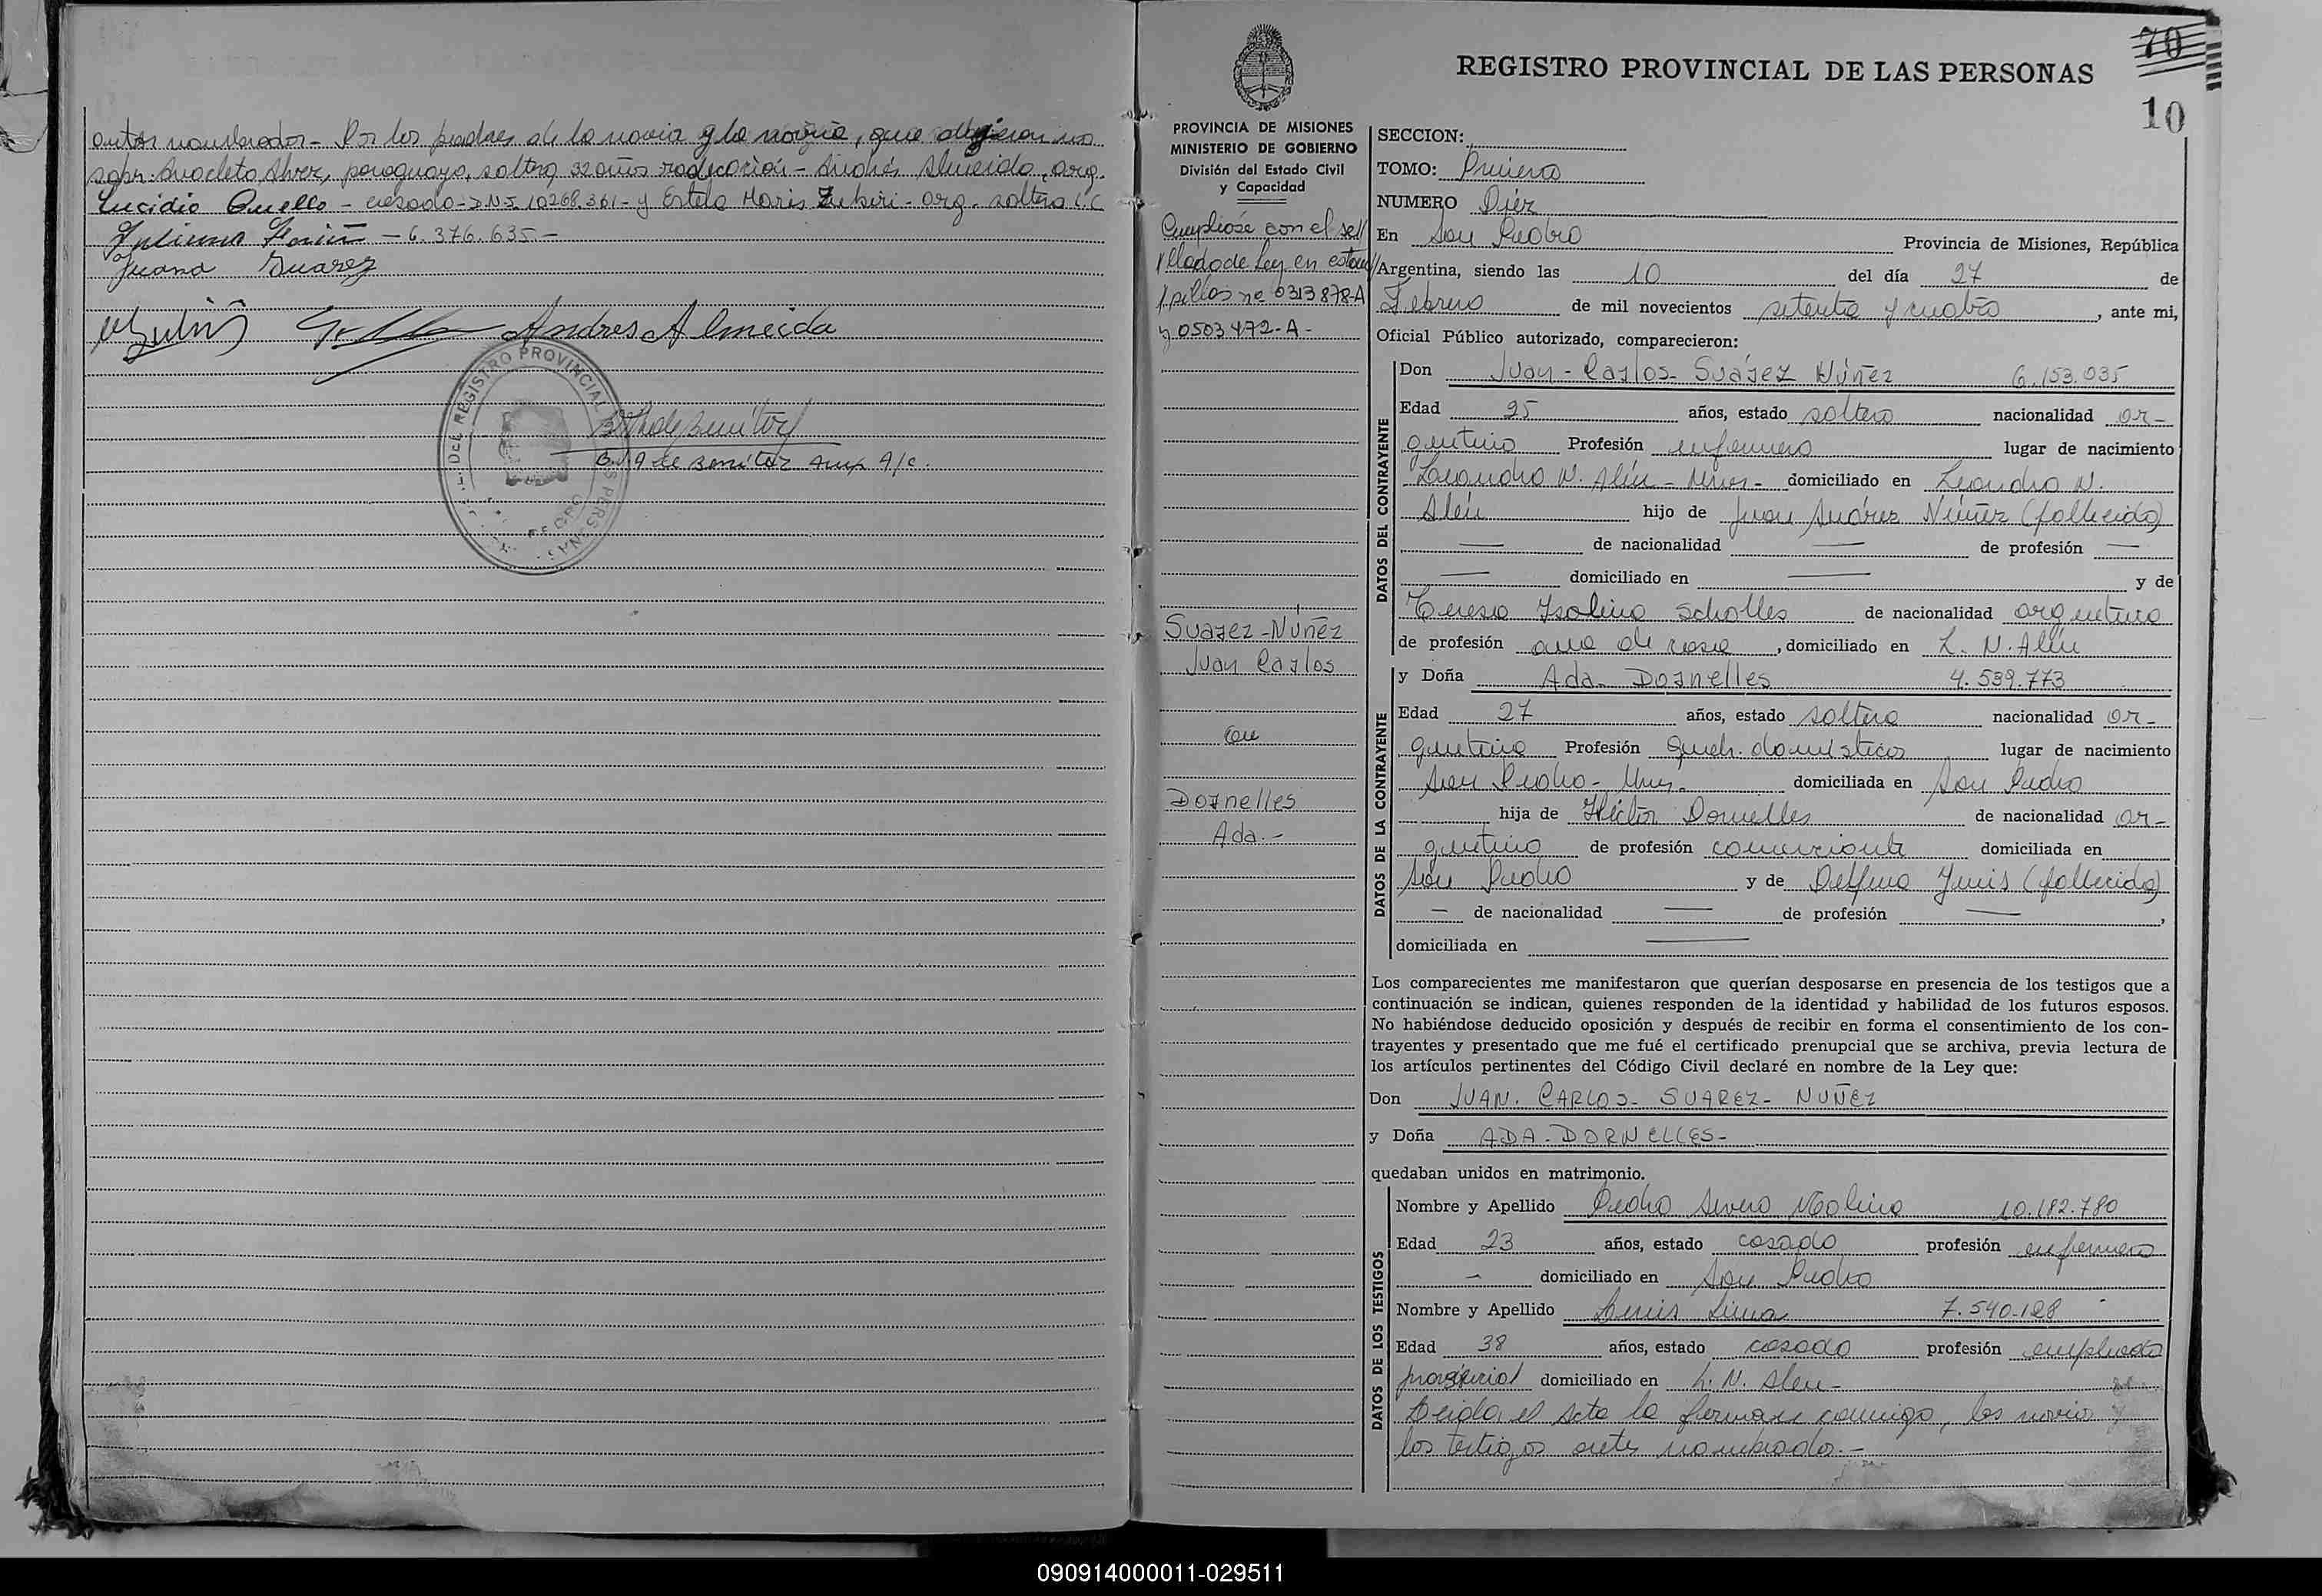 antes nombrados - Por los padres de la novia y la novia, que dijeron no
saber. Anacleto Alvez, paraguayo, soltero, 32 años radicación - Andrés Almeida, arg.
Lucidio Quello - casado - D.N.I. 10268.361 - y Estela Maris Zubiri - arg. soltera L.C
6.376.635 -
Juana Suarez
Andres Almeida
DEL REGISTRO PROVINCIAL
de Benitez A/C.
70
10
REGISTRO PROVINCIAL DE LAS PERSONAS
PROVINCIA DE MISIONES
MINISTERIO DE GOBIERNO
División del Estado Civil
y Capacidad
Cumplióse con el se//
//llado de Ley en estam//
//pillas no 0313878-A
y 0503472-A-
Suarez-Núñez
Juan Carlos
con
Dornelles
Ada.-
SECCION:
TOMO: Primero
NUMERO Diez
En San Pedro Provincia de Misiones, República
Argentina, siendo las 10 del día 27 de
Febrero de mil novecientos setenta y cuatro, ante mi,
Oficial Público autorizado, comparecieron:
DATOS DEL CONTRAYENTE
Don Juan-Carlos-Suárez Núñez 6.153.035
Edad 25 años, estado soltero nacionalidad ar-
gentino Profesión enfermero lugar de nacimiento
Leandro N. Alén - Mnes- domiciliado en Leandro N.
Alén hijo de Juan Suárez Núñez (fallecido)
— de nacionalidad — de profesión —
— domiciliado en — y de
Teresa Isolina Scholles de nacionalidad argentina
de profesión ama de casa, domiciliado en L. N. Alén
DATOS DE LA CONTRAYENTE
y Doña Ada-Dornelles 4.539.773
Edad 27 años, estado soltera nacionalidad ar-
gentina Profesión Queh. domésticos lugar de nacimiento
San Pedro-Mnes. domiciliada en San Pedro
hija de Héctor Dornelles de nacionalidad ar-
gentino de profesión comerciante domiciliada en
San Pedro y de Delfina (fallecida)
— de nacionalidad — de profesión —,
domiciliada en —
Los comparecientes me manifestaron que querían desposarse en presencia de los testigos que a
continuación se indican, quienes responden de la identidad y habilidad de los futuros esposos.
No habiéndose deducido oposición y después de recibir en forma el consentimiento de los con-
trayentes y presentado que me fué el certificado prenupcial que se archiva, previa lectura de
los artículos pertinentes del Código Civil declaré en nombre de la Ley que:
Don JUAN. CARLOS- SUAREZ- NUÑEZ
y Doña ADA-DORNELLES-
quedaban unidos en matrimonio.
DATOS DE LOS TESTIGOS
Nombre y Apellido Pedro Severo Molina 10.182.780
Edad 23 años, estado casado profesión enfermero
— domiciliado en San Pedro
Nombre y Apellido Luis Lima 7.540.128
Edad 38 años, estado casado profesión empleado
provincial domiciliado en L. N. Alen-
Leida el Acta la firman conmigo, los novios y
los testigos antes nombrados.-
090914000011-029511